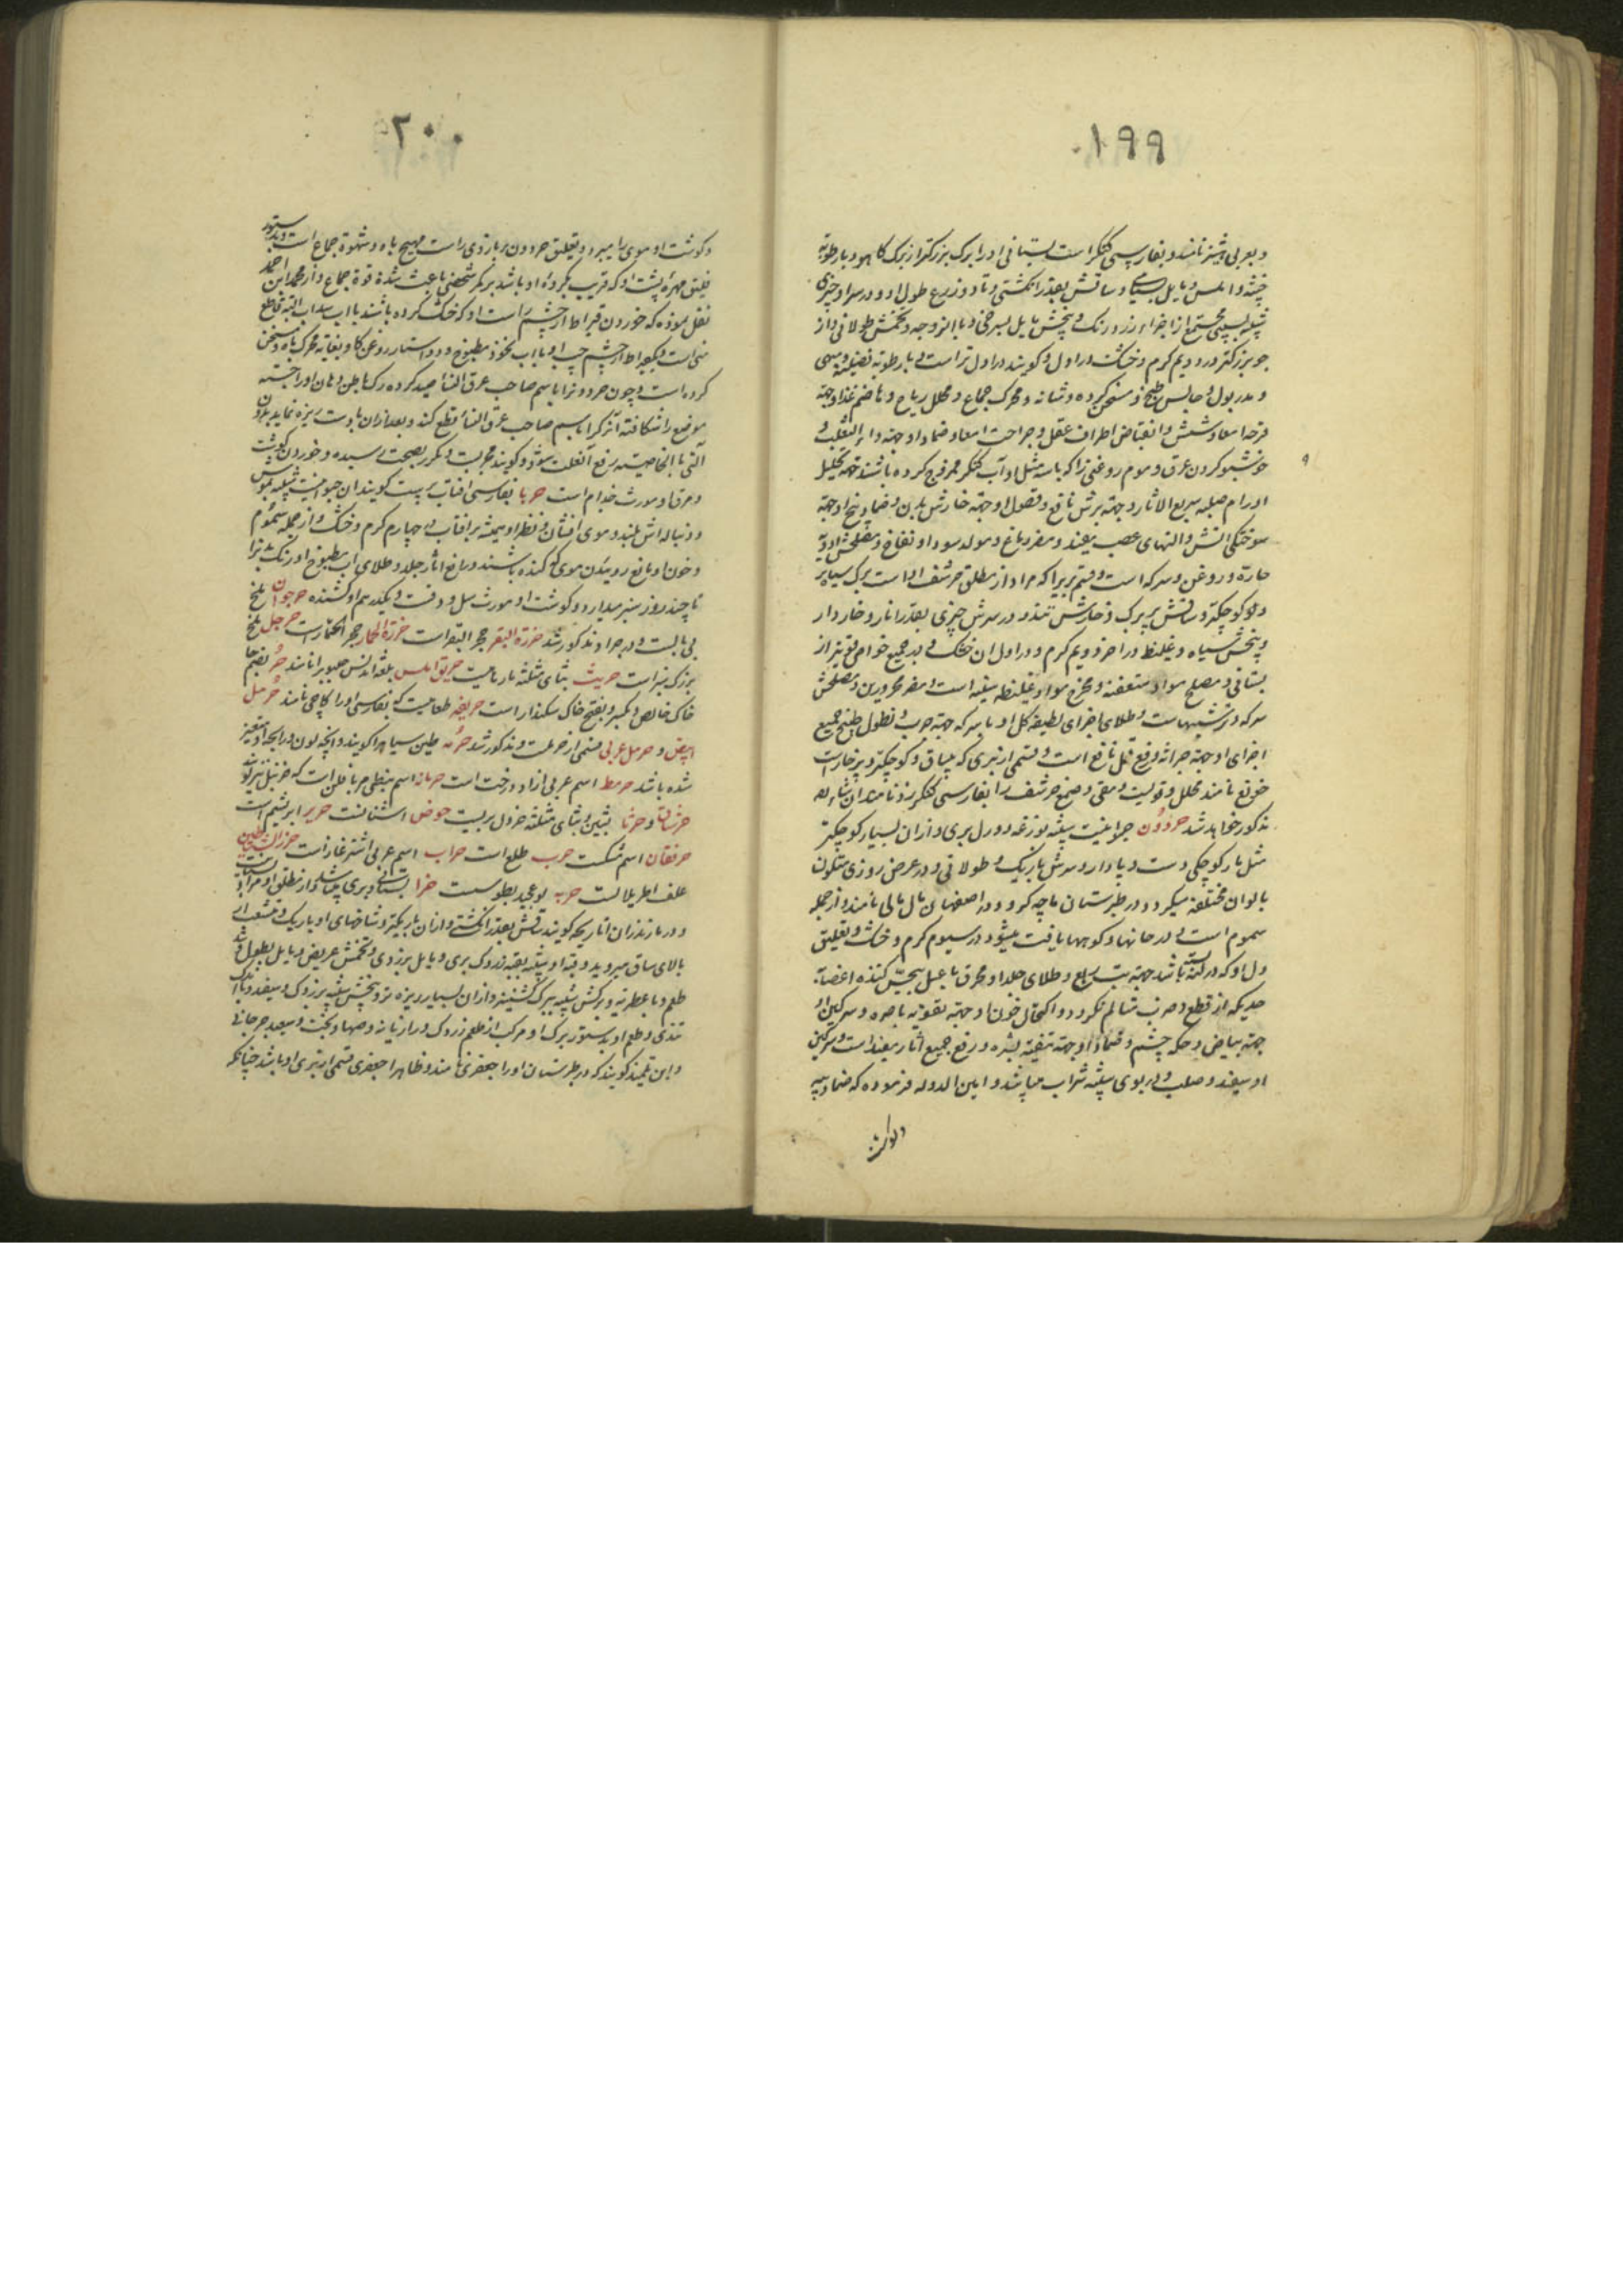 ۱۹۹
و بعربی نامند و بفارسی کنکر است بستانی او را برک بزرکتر از برک کاهو و با رطوبة
و املس و مایل بسیاهی و ساقش بقدر انکشتی و تا دو زرع طول او و در سر او چیزی
شبیه از اجزاء زرد رنک و بیخش مایل بسرخی و با لزوجه و تخمش طولانی و از
جو بزرکتر در دویم کرم و خشک در اول و کویند در اول تر است و با رطوبة فضلیه و مبهی
و مدر بول و حابس طبع و مسخن کرده و مثانه و محرک جماع و محلل ریاح و هاضم غذا و جهة
قرحه امعا و شش و انقباض اطراف عقل و جراحت امعا و ضماد او جهة داء الثعلب و
خوشبو کردن عرق و موم روغنی را که با سه مثل او آب کنکر ممزوج کرده باشند جهة تحلیل
اورام صلبه سریع الاثر و جهة برش نافع و غسول او جهة خارش بدن و ضماد بیخ او جهة
سوختکی آتش و التهای عصب مفید و مضر دماغ و مولد سودا و نفاخ و مصلحش ادویه
حاره و روغن و سرکه است و قسم بری را که مراد از مطلق حرشف است برک سیاه تر
و کوچکتر و ساقش پر برک و خارش تند و در سرش چیزی بقدر انار و خار دار
و بیخش سیاه و غلیظ در اخر دویم کرم و در اول ان خشک و در جمیع خواص قویتر از
بستانی و مصلح مواد متعفنه و مخرج مواد غلیظه است و مضر محرورین و مصلحش
سرکه و ترشیهاست و طلای اجزای لطیفه کل او با سرکه جهة جرب و نطول طبیخ جمیع
اجزای او جهة حزاز و رفع قمل نافع است و قسمی از بری که بیساق و کوچکتر و پر خار است
نامند محلل و قویست و مقی و صمغ حرشف را بفارسی کنکر زد نامند ان شاء الله
مذکور خواهد شد حردون حیوانیست شبیه بوزغه و ورل بری و از ان بسیار کوچکتر
مثل مار کوچکی دست و پا دار و سرش باریک و طولانی و در عرض روزی متلون
بالوان مختلفه میکردد و در طبرستان ماچه کرو و در اصفهان مال مالی نامند و از جمله
سموم است و در خانها و کوهها یافت میشود در سیوم کرم و خشک و تعلیق
دل او که در باشد جهة تب ربع و طلای جلد او محرق با عسل بیحس کننده اعضاء
بحدیکه از قطع و ضرب متالم نکردد و اکتحال خون او جهة تقویه باصره و سرکین او
جهة بیاض و حکه چشم و ضماد او جهة تنقیه بشره و رفع جمیع اثار مفید است و سرکین
او سفید و صلب و در بوی شبیه شراب میباشد و امین الدوله فرموده که ضماد پیه
۲۰۰
و کوشت او موی را میبرد و تعلیق حردون بر بازوی راست مهیج باه و شهوة جماع است
تعلیق مهره پشت او که قریب بکرده او باشد بر کمر شخصی باعث شدة قوة جماع و از محمد ابن احمد
نقل نموده که خوردن قیراط از چشم راست او که خشک کرده باشند با اب سداب البته قاطع
منی است و یکقیراط از چشم چپ او با اب نخود مطبوخ و دو استار روغن کاو بغایة محرک باه و مسخن
کرده است و چون حردون را باسم صاحب عرق النسا صید کرده
موضع را شکافته باسم صاحب عرق النسا قطع کند و بعد از ان با دست ریزه نماید
بالخاصیت رفع آنعلت شود و کویند مجربست و مکرر بصحت رسیده و خوردن کوشت
و مرق او مورث جذام است حربا بفارسی افتاب پرست کویند ان حیوانیست شبیه بموش
و دنباله اش بلند و موی افشان و نظر او همیشه بر افتاب در چهارم کرم و خشک و از جمله سموم
و خون او مانع روییدن موی که کنده باشند و رافع اثار جلد و طلای اب مطبوخ او رنک بدن را
تا چند روز سبز میدارد و کوشت او مورث سل و دق است و یکدرهم او کشنده حرجوان ملخ
بی بالست و در جراد مذکور شد خرزة البقر حجر البقر است خرزة الحمار حجر الحمار است حرجل ملخ
بزرک سبز است حریث بثای مثلثه مارماهیست حریق املس بلغة اندلس نامند حر بضم حا
خاک خالص و بکسر و بفتح خاک سنکدار است حریقه طعامیست که بفارسی او را کاچی نامند حرمل
ابیض و حرمل عربی قسمی از حرملست و مذکور شد حرمه طین سیاه را کویند و انچه لون و رایحه او متغیر
شده باشد حرمط اسم عربی ازاد درخت است حرمانه اسم نبطی
حرشان و حرشا بشین و بثای مثلثه خردل بریست حوض اشنانست حریر ابریشم است
حرنقان اسم شکست حرب طلع است حراب اسم عربی اشترغاز است
علف اطریلالست حربه حزا بستانی و بری میباشد و از مطلق او مراد
و در مازندران اناریجه کویند ساقش بقدر انکشتی و از ان باریکتر و شاخهای او باریک و متشعب از
بالای ساق میروید و قبه او شبیه بقبه زردک بری و مایل بزردی و تخمش عریض و مایل بطول و تند
طعم و با عطریه و برکش شبیه ببرک کشنیز و از ان بسیار ریزه تر و بیخش شبیه بزردک و سفید و با
تندی و طعم او بدستور برک او مرکب از طعم زردک و رازیانه و سعید جرجانی
و ابن تلمیذ کویند که در طبرستان او را جعفری نامند و ظاهرا جعفری قسمی از بری او باشد چنانکه